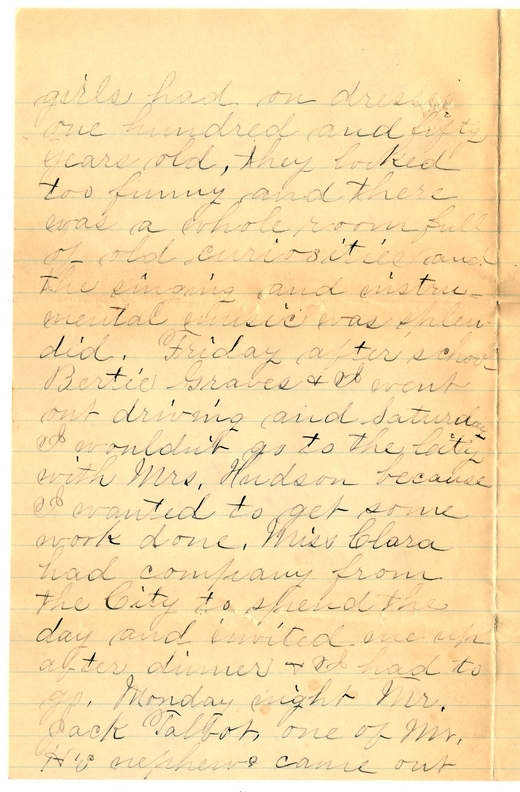 girls had on dresses
one hundred and fifty
years old, they looked
too funny and there
was a whole room full
of old curiosities and
the singing and instru-
mental music was splen-
did. Friday after school
Bertie Graves & I went
out driving and Saturday
I wouldn't go to the City
with Mrs. Hudson because
I wanted to get some
work done. Miss Clara
had company from
the City to spend the
day and invited me up
after dinner & I had to
go. Monday night Mr.
Jack Talbot, one of Mr.
H's nephews came out